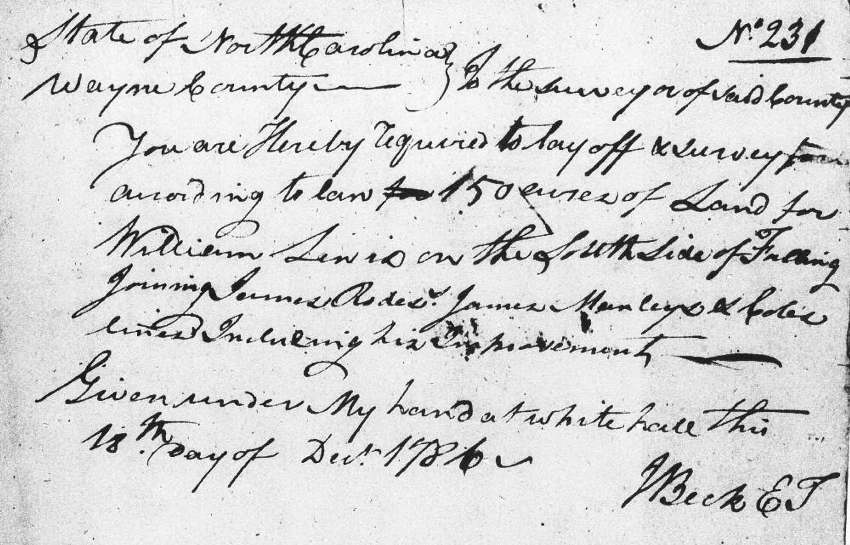 State of North Carolina } No. 231
Wayne County } To the surveyor of said County
You are Hereby required to lay off & survey
according to law for 150 acres of Land for
William Lewis on the South Side of Falling
Joining James Rodes, James Manleys & Coles
lines Including his Improvement
Given under My hand at white hall this
18th Day of Decr. 1786
J Beck E T